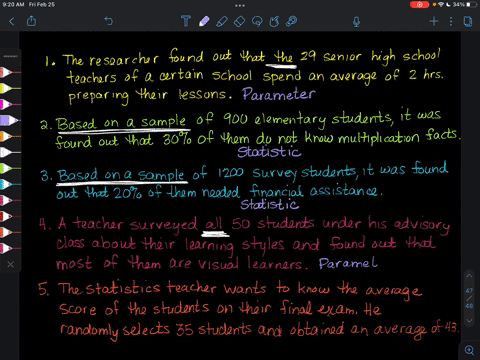 9:20 AM Fri Feb 25
34%
1. The researcher found out that the 29 senior high school
teachers of a certain school spend an average of 2 hrs.
preparing their lessons. Parameter
2. Based on a sample of 900 elementary students, it was
found out that 30% of them do not know multiplication facts.
Statistic
3. Based on a sample of 1200 survey students, it was found
out that 20% of them needed financial assistance.
Statistic
4. A teacher surveyed all 50 students under his advisory
class about their learning styles and found out that
most of them are visual learners. Paramel
5. The statistics teacher wants to know the average
score of the students on their final exam. He
randomly selects 35 students and obtained an average of 43.
47
48